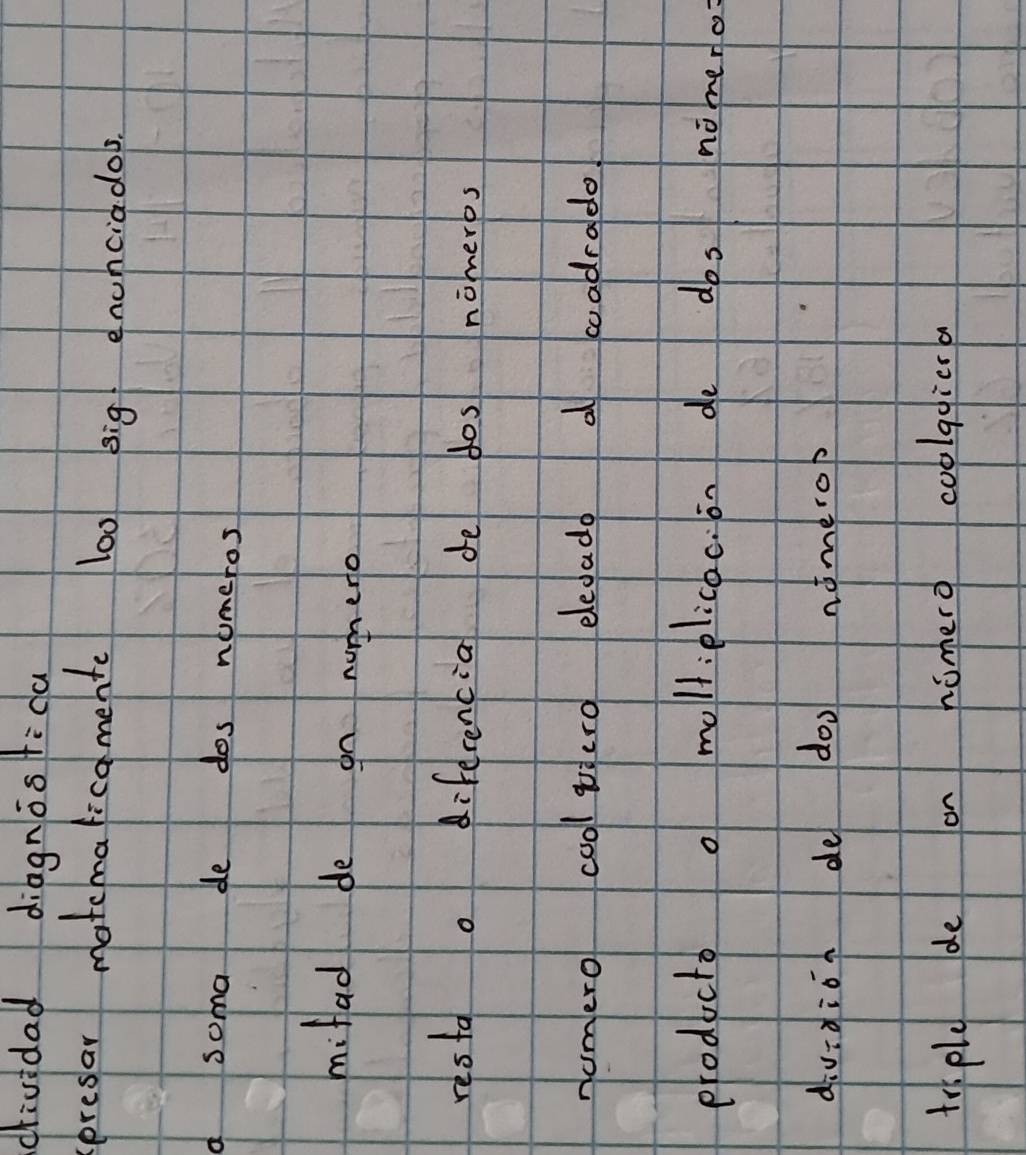 ctividad diagnóstica
xpresar matematicamente los sig. enunciados.
a suma de dos numeros
mitad de un numero
resta o diferencia de dos números
numero cual quiero elevado al cuadrado.
producto o multiplicación de dos números
división de dos números
triple de un número cualquiera